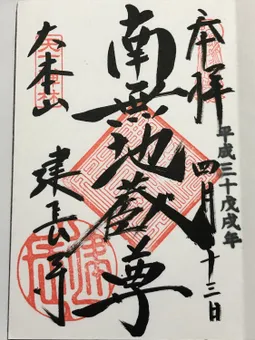 奉拝
平成三十戊戌年
四月十三日
南無地蔵尊
大本山
建長寺